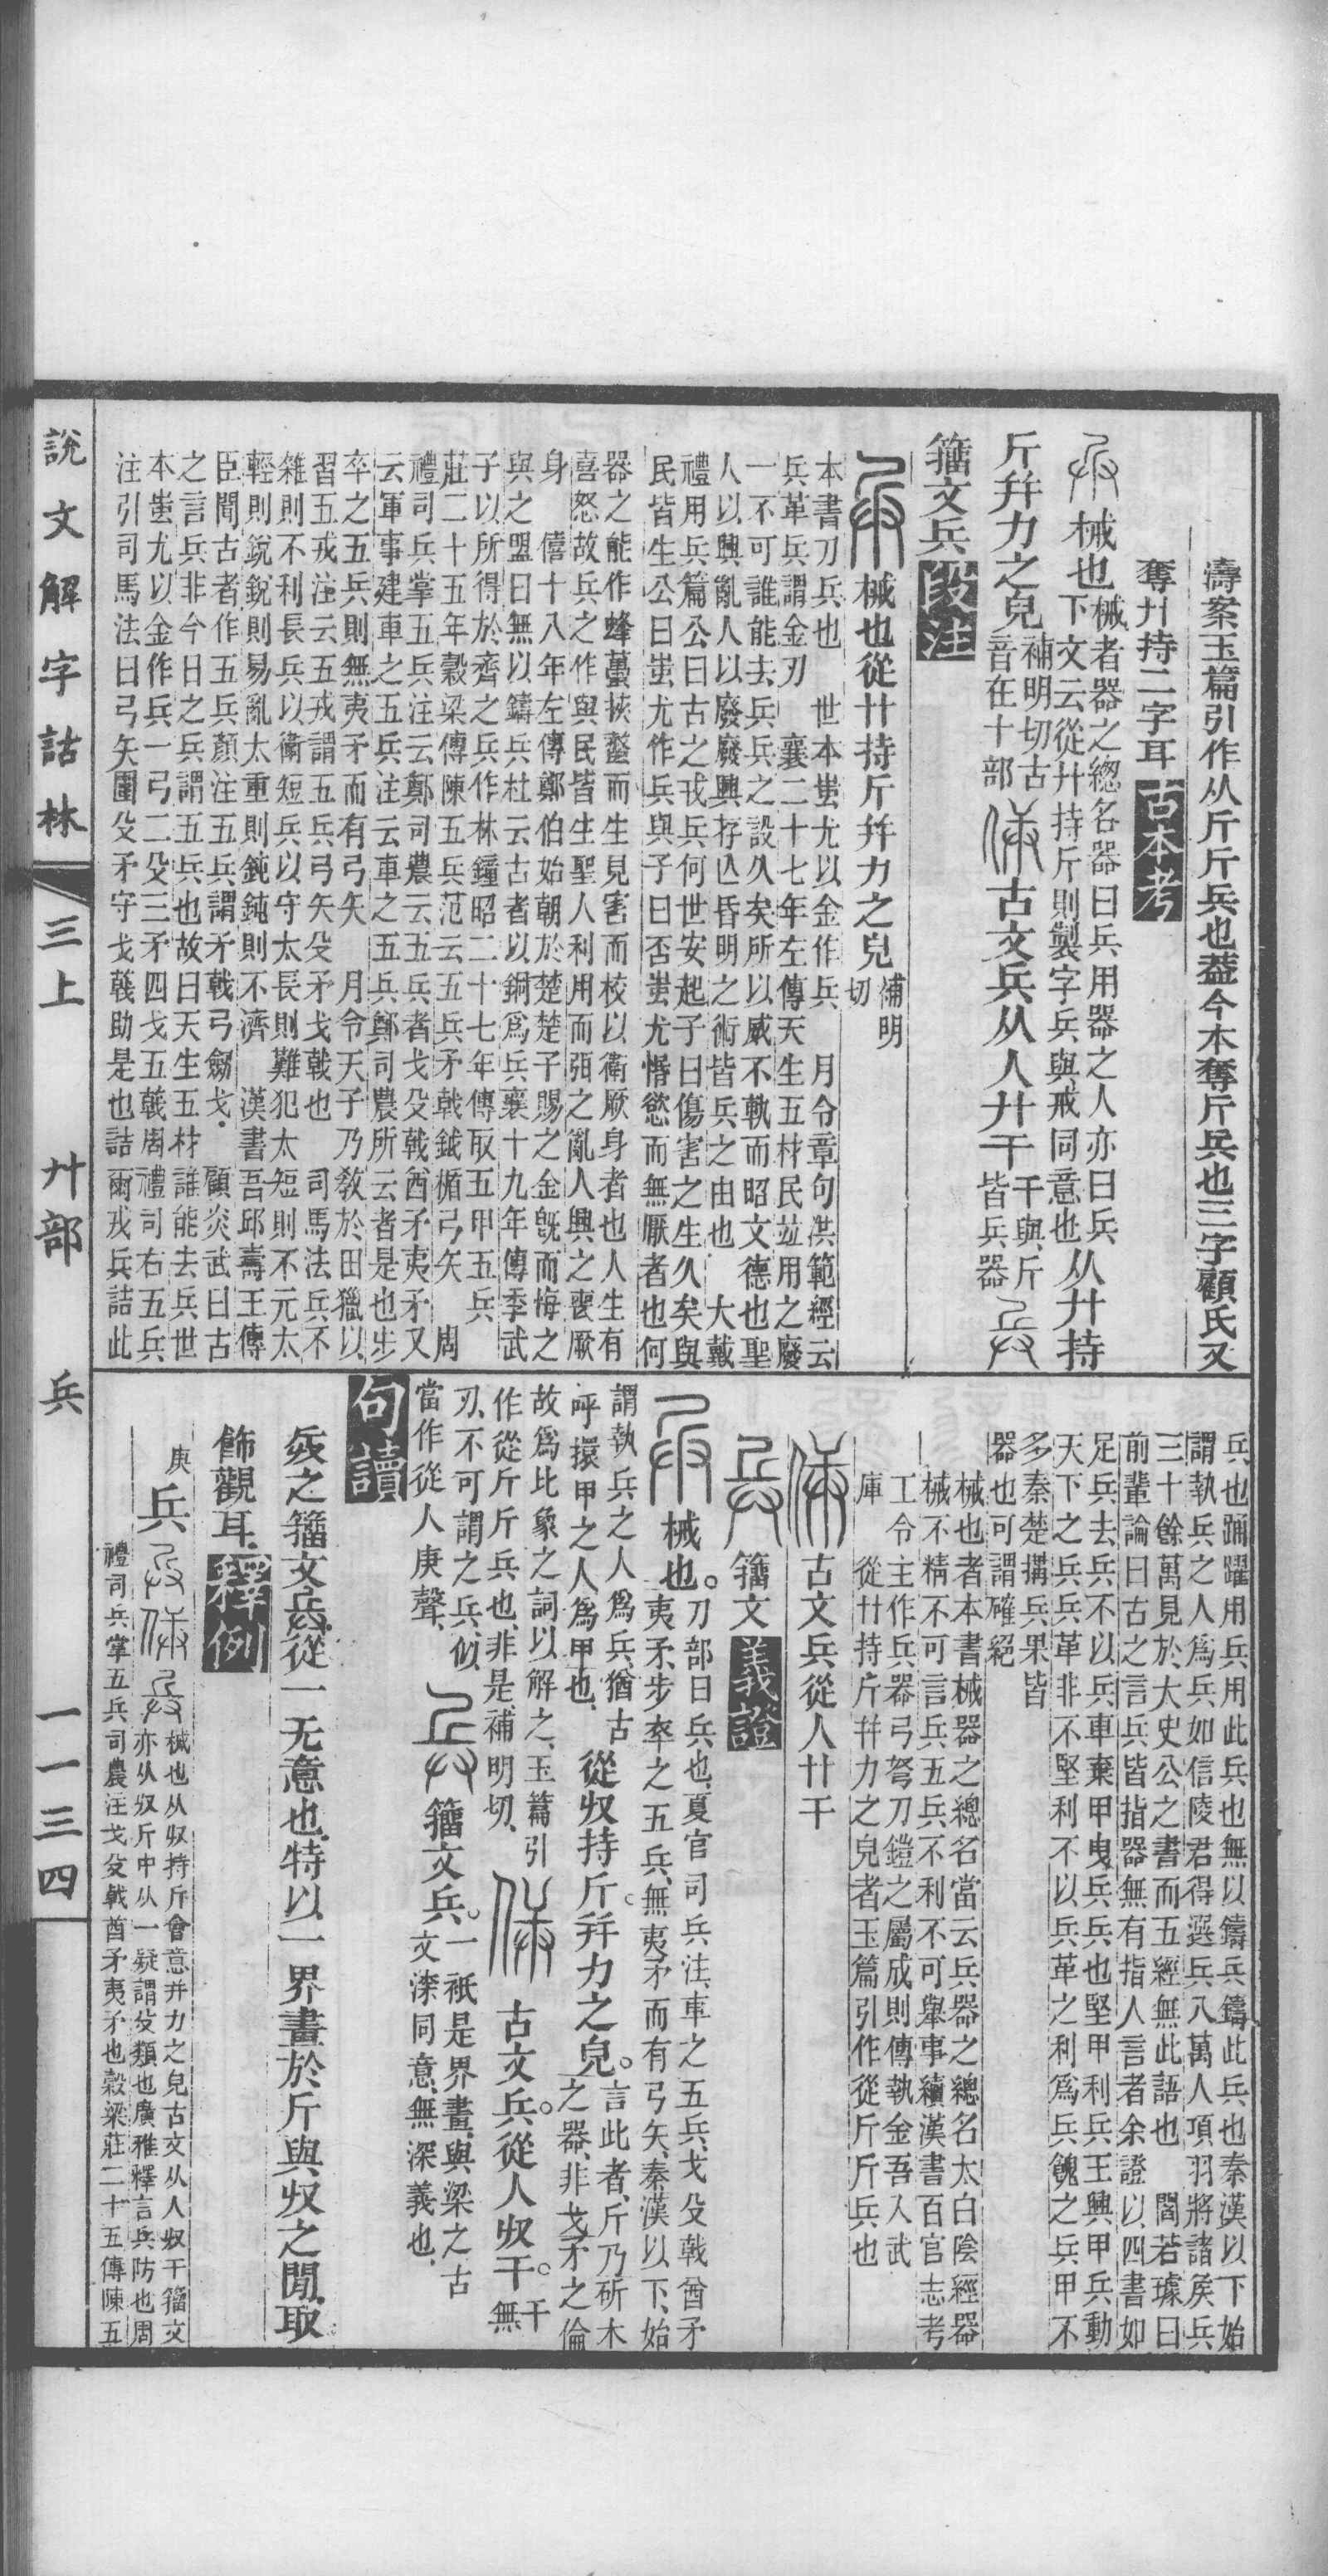 濤案玉篇引作从斤斤兵也葢今本奪斤兵也三字顧氏又
奪廾持二字耳古本考
械也械者器之緫名器曰兵用器之人亦曰兵
下文云從廾持斤則製字兵與戒同意也从廾持
斤幷力之皃補明切古
音在十部古文兵从人廾干干與斤
皆兵器
籒文兵段注
械也從廾持斤幷力之皃補明
切
本書刀兵也 世本蚩尤以金作兵 月令章句洪範經云
兵革兵謂金刃 襄二十七年左傳天生五材民竝用之廢
一不可誰能去兵兵之設久矣所以威不軌而昭文德也聖
人以興亂人以廢廢興存亾昏明之術皆兵之由也 大戴
禮用兵篇公曰古之戎兵何世安起子曰傷害之生久矣與
民皆生公曰蚩尤作兵與子曰否蚩尤惛慾而無厭者也何
器之能作蜂蠆挾螫而生見害而校以衛厥身者也人生有
喜怒故兵之作與民皆生聖人利用而弭之亂人興之喪厥
身 僖十八年左傳鄭伯始朝於楚楚子賜之金旣而悔之
與之盟曰無以鑄兵杜云古者以銅爲兵襄十九年傳季武
子以所得於齊之兵作林鐘昭二十七年傳取五甲五兵
莊二十五年穀梁傳陳五兵范云五兵矛戟鉞楯弓矢 周
禮司兵掌五兵注云鄭司農云五兵者戈殳戟酋矛夷矛又
云軍事建車之五兵注云車之五兵鄭司農所云者是也步
卒之五兵則無夷矛而有弓矢 月令天子乃敎於田獵以
習五戎注云五戎謂五兵弓矢殳矛戈戟也 司馬法兵不
雜則不利長兵以衞短兵以守太長則難犯太短則不元太
輕則銳銳則易亂太重則鈍鈍則不濟 漢書吾邱壽王傳
臣聞古者作五兵顏注五兵謂矛戟弓劒戈 顧炎武曰古
之言兵非今日之兵謂五兵也故曰天生五材誰能去兵世
本蚩尤以金作兵一弓二殳三矛四戈五戟周禮司右五兵
注引司馬法曰弓矢圍殳矛守戈戟助是也詰爾戎兵詰此
兵也踊躍用兵用此兵也無以鑄兵鑄此兵也秦漢以下始
謂執兵之人爲兵如信陵君得選兵八萬人項羽將諸侯兵
三十餘萬見於大史公之書而五經無此語也 閻若璩曰
前輩論曰古之言兵皆指器無有指人言者余證以四書如
足兵去兵不以兵車棄甲曳兵兵也堅甲利兵王興甲兵動
天下之兵兵革非不堅利不以兵革之利爲兵餽之兵甲不
多秦楚搆兵果皆
器也可謂確絕
械也者本書械器之總名當云兵器之總名太白陰經器
械不精不可言兵五兵不利不可舉事續漢書百官志考
工令主作兵器弓弩刀鎧之屬成則傳執金吾入武
庫 從廾持斤幷力之皃者玉篇引作從斤斤兵也
古文兵從人廾干
籒文義證
械也。刀部曰兵也、夏官司兵注、車之五兵、戈殳戟酋矛
夷矛、步卒之五兵、無夷矛而有弓矢、秦漢以下、始
謂執兵之人爲兵、猶古
呼擐甲之人爲甲也、從収持斤。幷力之皃。言此者、斤乃斫木
之器、非戈矛之倫
故爲比象之詞以解之、玉篇引
作從斤斤兵也、非是補明切、古文兵。從人収干。干無
刃、不可謂之兵、似
當作從人庚聲、籒文兵。一衹是界畫、與梁之古
文㴇同意、無深義也、
句讀
兵之籒文兵從一无意也、特以一界畫於斤與収之閒、取
飾觀耳、釋例
庚兵械也从収持斤會意幷力之皃古文从人収干籒文
亦从収斤中从一疑謂殳類也廣雅釋言兵防也周
禮司兵掌五兵司農注戈殳戟酋矛夷矛也穀梁莊二十五傳陳五
說文解字詁林 三上 廾部 兵 一一三四